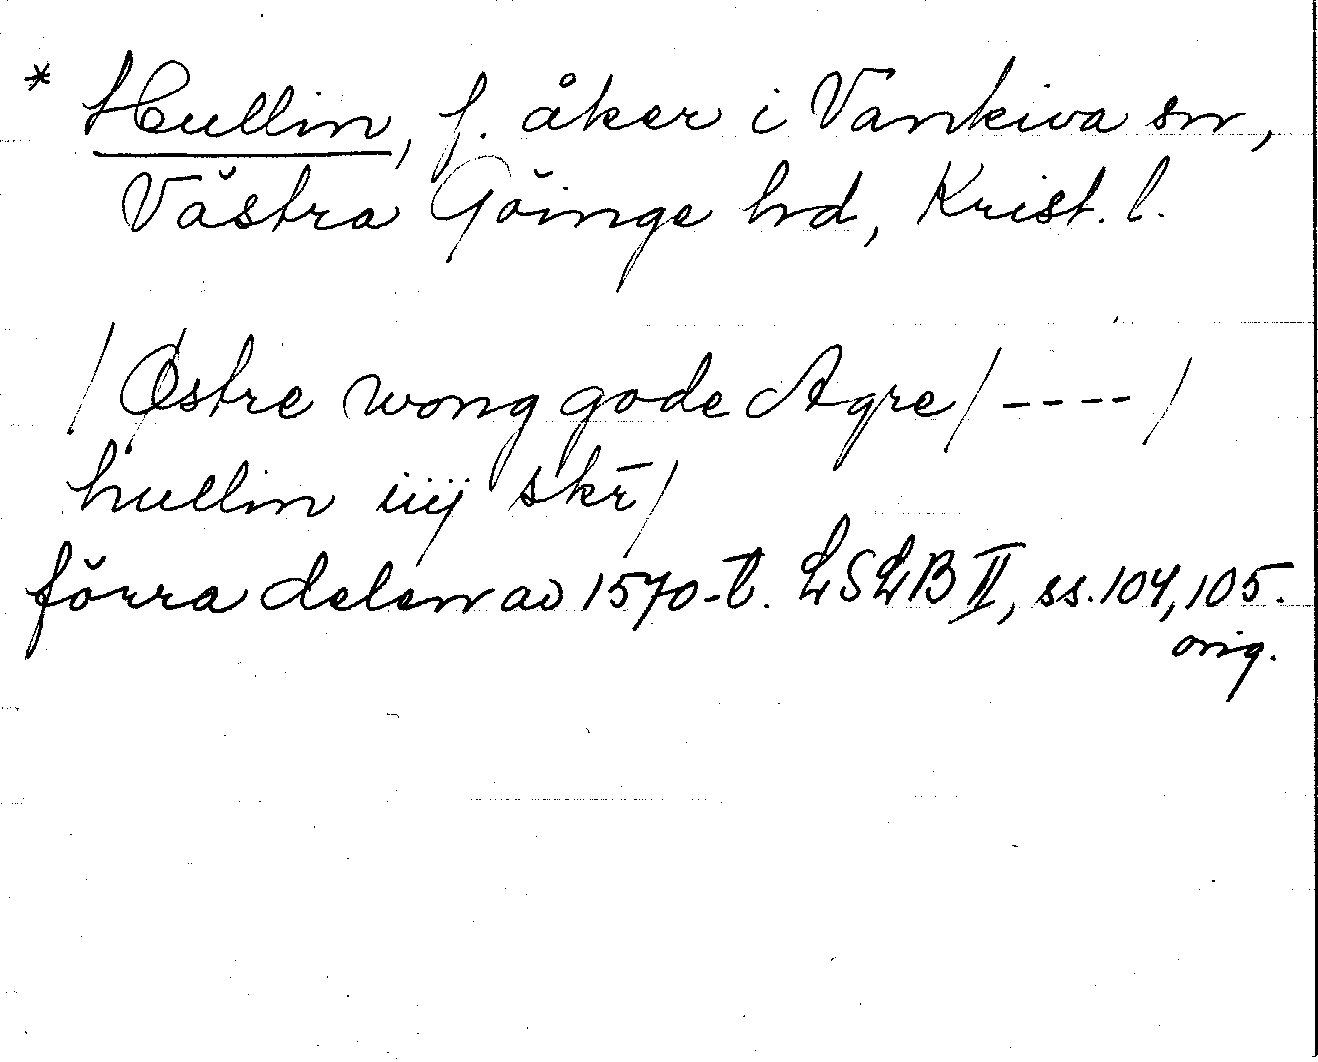 * Hullin, f. åker i Vankiva sn,
Västra Göinge hd, Krist. l.
/Østre wong gode Agre/----/
hullin iiij skr̄/
förra delen av 1570-t. LSLB II, ss. 104, 105.
orig.